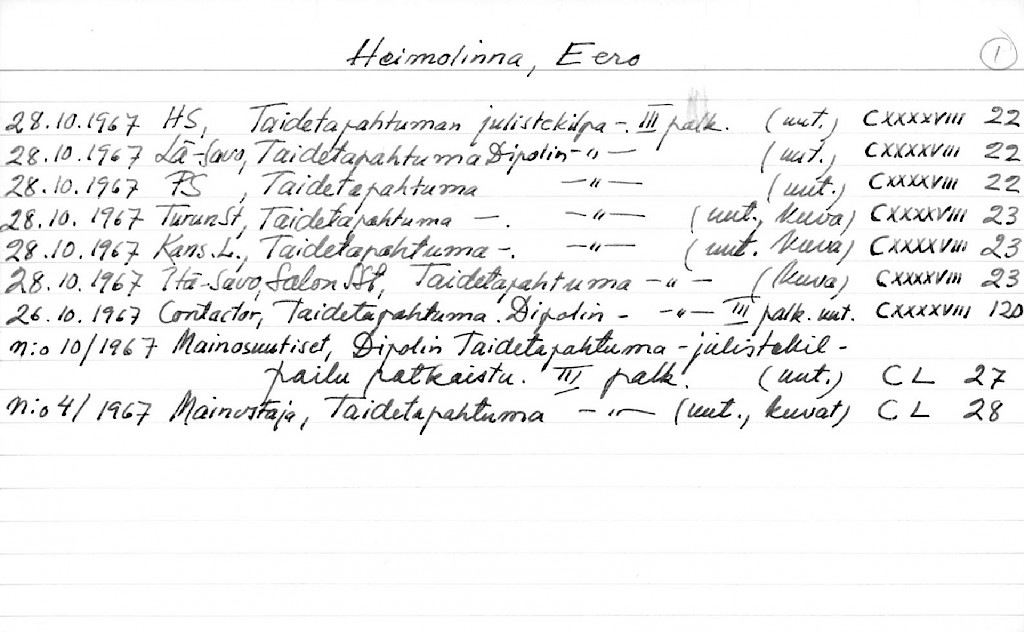 Heimolinna, Eero 1
28.10.1967 HS, Taidetapahtuman julistekilpa-. III palk. (uut.) CXXXXVIII 22
28.10.1967 Lä-Savo, Taidetapahtuma Dipolin -"- (uut.) CXXXXVIII 22
28.10.1967 FS, Taidetapahtuma -"- (uut.) CXXXXVIII 22
28.10.1967 TurunSt, Taidetapahtuma -. -"- (uut., kuva) CXXXXVIII 23
28.10.1967 Kans.L., Taidetapahtuma -. -"- (uut. kuva) CXXXXVIII 23
28.10.1967 Itä-Savo, Salon SSt, Taidetapahtuma -"- (kuva) CXXXXVIII 23
26.10.1967 Contactor, Taidetapahtuma. Dipolin - -"- III palk. uut. CXXXXVIII 120
n:o 10/1967 Mainosuutiset, Dipolin Taidetapahtuma - julistekil-
pailu ratkaistu. III palk. (uut.) CL 27
n:o 4/1967 Mainostaja, Taidetapahtuma -"- (uut., kuvat) CL 28